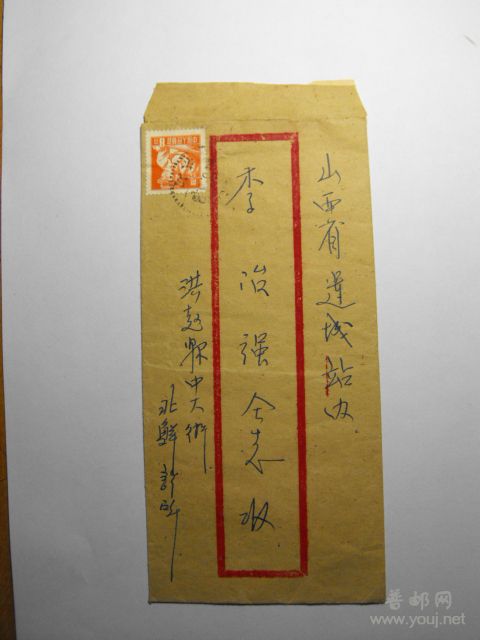 山西省運城站内
李治强仝志收
洪赵縣中大街
普邮网
www.youj.net